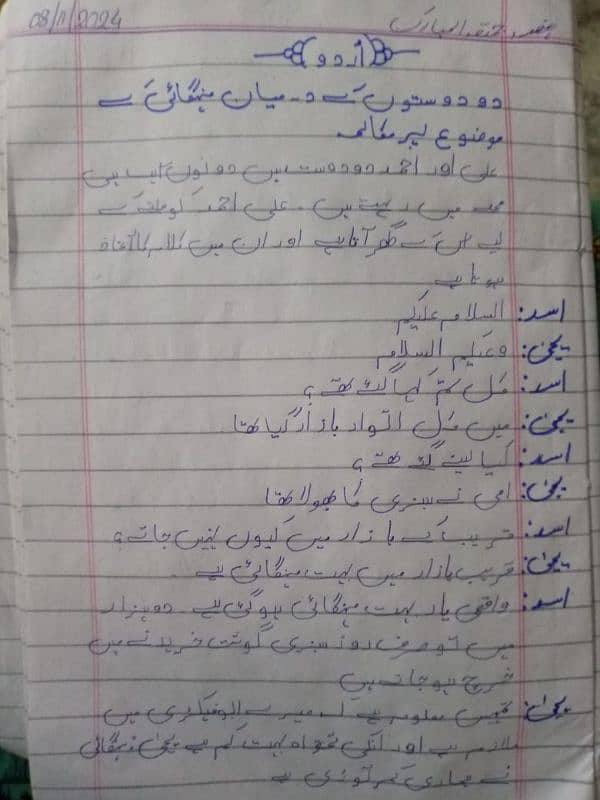 08/11/2024 جمعۃ المبارک
اردو
دو دوستوں کے درمیان مہنگائی کے
موضوع پر مکالمہ
علی اور احمد دو دوست ہیں دونوں ایک ہی
محلے میں رہتے ہیں۔ علی احمد کو ملنے کے
لیے اس کے گھر آتا ہے اور ان میں کلام کا آغاز
ہوتا ہے
اسد: السلام علیکم
یحیٰ: وعلیکم السلام
اسد: کل تم کہا گئے تھے؟
یحیٰ: میں کل اتوار بازار گیا تھا۔
اسد: کیا لینے گئے تھے؟
یحیٰ: امی نے سبزی کا بھولا تھا
اسد: قریب کے بازار میں کیوں نہیں جاتے؟
یحیٰ: قریب بازار میں بہت مہنگائی ہے۔
اسد: واقعی یار بہت مہنگائی ہو گئی ہے۔ دو ہزار
میں تو صرف روز سبزی گوشت خریدنے میں
خرچ ہو جاتے ہیں
یحیٰ: تمہیں معلوم ہے کہ میرے ابو فیکٹری میں
ملازم ہے اور انکی تنخواہ بہت کم ہے یحیٰ مہنگائی
نے ہماری کمر توڑدی ہے